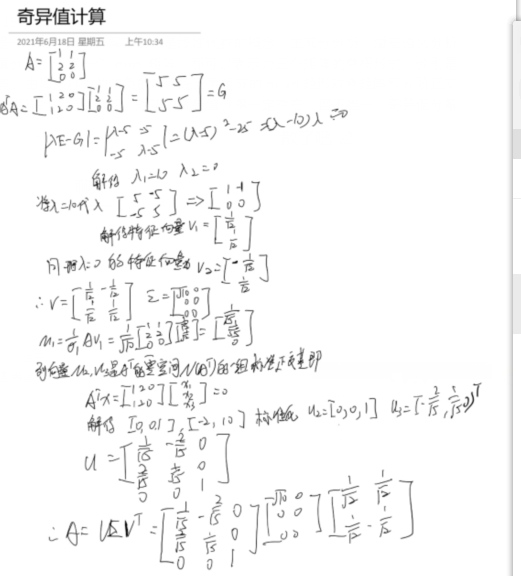 奇异值计算
2021年6月18日 星期五 上午10:34
A=[1 1; 2 2; 0 0]
A=[1 2 0; 1 2 0][1 1; 2 2; 0 0]=[5 5; 5 5]=G
|λE-G|=|λ-5 -5; -5 λ-5|=(λ-5)²-25=(λ-10)λ=0
解得 λ₁=10 λ₂=0
λ=10代入 [5 -5; -5 5] ⇒ [1 -1; 0 0]
解得特征向量 V₁=[1/√2; 1/√2]
同理λ=0的特征向量 V₂=[-1/√2; 1/√2]
∴V=[1/√2 -1/√2; 1/√2 1/√2] Σ=[√10 0; 0 0; 0 0]
u₁=1/σ₁ AV₁=1/√10[1 1; 2 2; 0 0][1/√2; 1/√2]=[1/√5; 2/√5; 0]
列向量U₂,U₃是Aᵀ的零空间N(Aᵀ)的一组标准正交基即
Aᵀx=[1 2 0; 1 2 0][x₁; x₂; x₃]=0
解得 [0,0,1],[-2,1,0] 标准化 u₂=[0,0,1] u₃=[-2/√5,1/√5,0]ᵀ
U=[1/√5 -2/√5 0; 2/√5 1/√5 0; 0 0 1]
∴A=UΣVᵀ=[1/√5 -2/√5 0; 2/√5 1/√5 0; 0 0 1][√10 0; 0 0; 0 0][1/√2 1/√2; 1/√2 -1/√2]